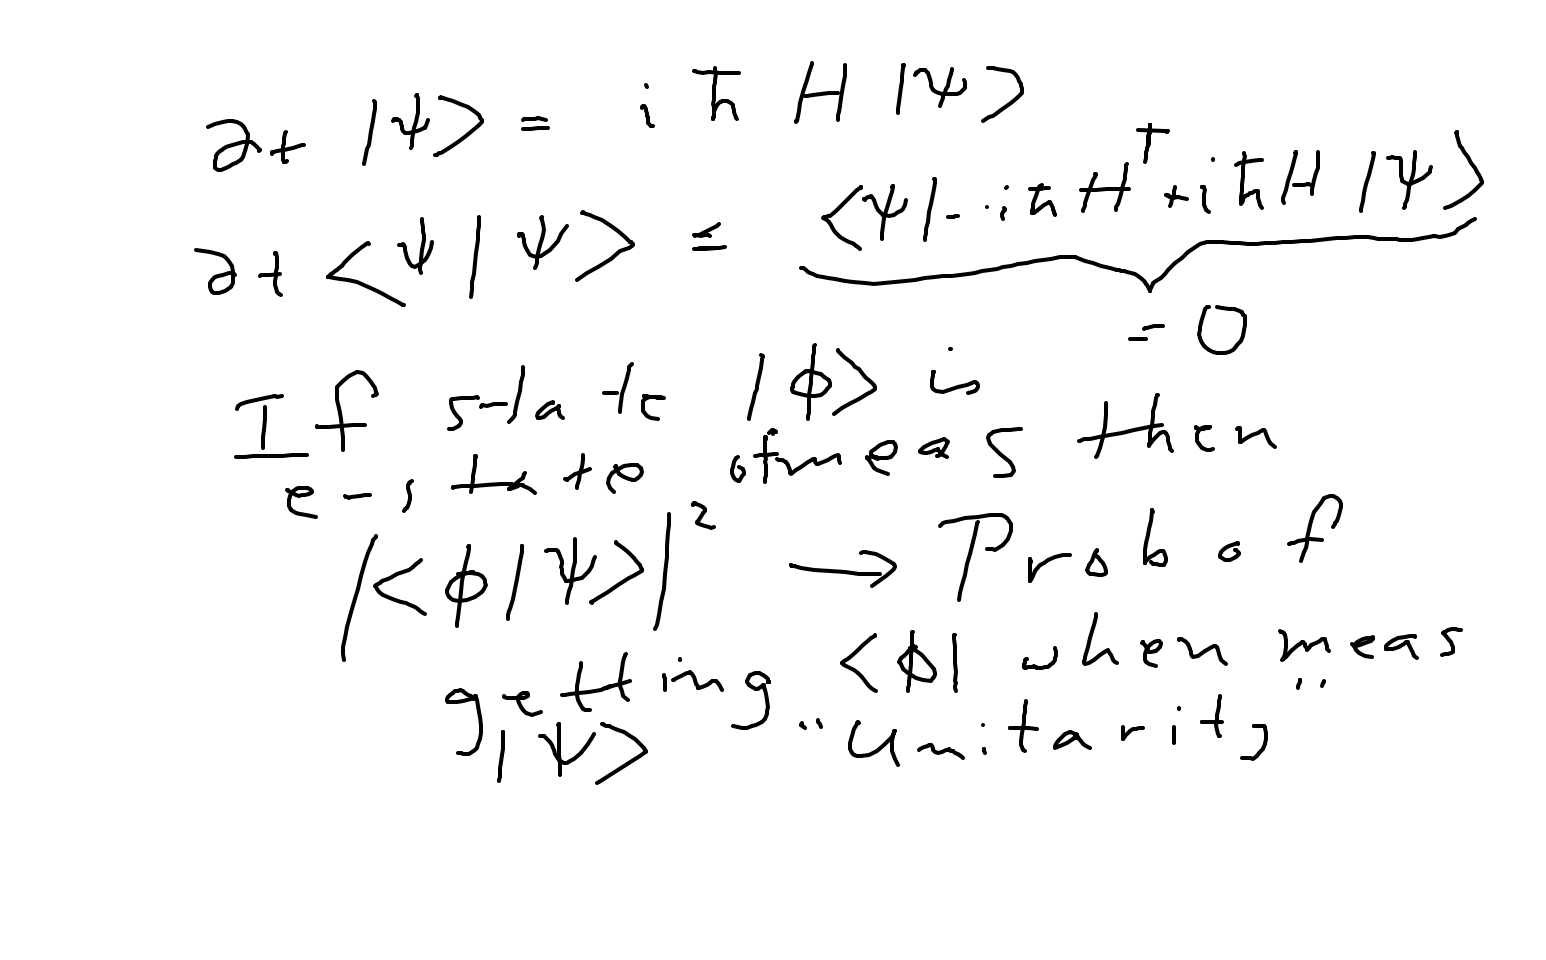 ∂t |ψ> = i ħ H |ψ>
∂t <ψ|ψ> = <ψ|-iħH†+iħH|ψ>
= 0
If state |ϕ> is
e-state of meas then
|<ϕ|ψ>|² → Prob of
getting <ϕ| when meas
|ψ> "Unitarity"